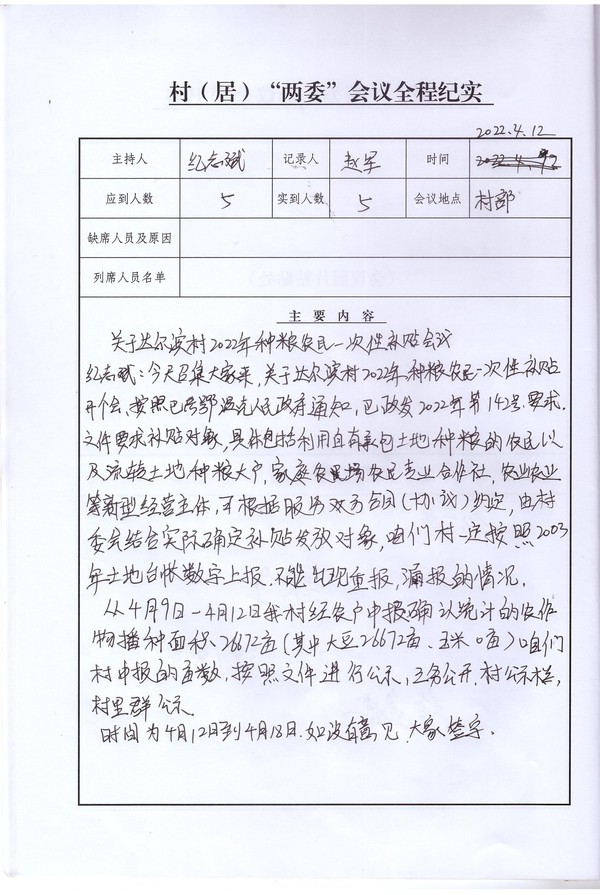 村（居）“两委”会议全程纪实
2022.4.12
主持人 纪志斌 记录人 赵军 时间
应到人数 5 实到人数 5 会议地点 村部
缺席人员及原因
列席人员名单
主 要 内 容
关于达尔滨村2022年种粮农民一次性补贴会议
纪志斌：今天召集大家来，关于达尔滨村2022年种粮农民一次性补贴
开个会，按照巴彦鄂温克人民政府通知，巴政发2022年第142号要求.
文件要求补贴对象，具体包括利用自有承包土地种粮的农民以
及流转土地种粮大户，家庭农场农民专业合作社，农业农业
等新型经营主体，可根据服务双方合同（协议）约定，由村
委会结合实际确定补贴发放对象，咱们村一定按照2003
年土地台帐数字上报，不能出现重报，漏报的情况.
从4月9日－4月12日我村经农户申报确认统计的农作
物播种面积26672亩（其中大豆26672亩、玉米0亩）咱们
村申报的亩数，按照文件进行公示，三务公开.村公示栏，
村里群公示.
时间为4月12日到4月18日.如没有意见.大家签字.